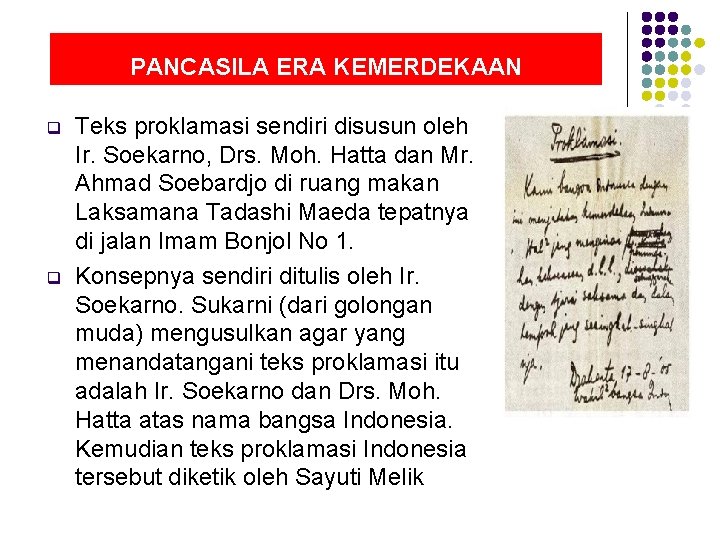 PANCASILA ERA KEMERDEKAAN
Teks proklamasi sendiri disusun oleh
Ir. Soekarno, Drs. Moh. Hatta dan Mr.
Ahmad Soebardjo di ruang makan
Laksamana Tadashi Maeda tepatnya
di jalan Imam Bonjol No 1.
Konsepnya sendiri ditulis oleh Ir.
Soekarno. Sukarni (dari golongan
muda) mengusulkan agar yang
menandatangani teks proklamasi itu
adalah Ir. Soekarno dan Drs. Moh.
Hatta atas nama bangsa Indonesia.
Kemudian teks proklamasi Indonesia
tersebut diketik oleh Sayuti Melik
Proklamasi.
Kami bangsa Indonesia dengan
ini menjatakan kemerdekaan Indonesia
Hal² jang mengenai
d.l.l.,
dengan tjara saksama dan
tempoh jang sesingkat-singkat
nja.
Djakarta 17-8-'05
Wakil² bangsa Indon